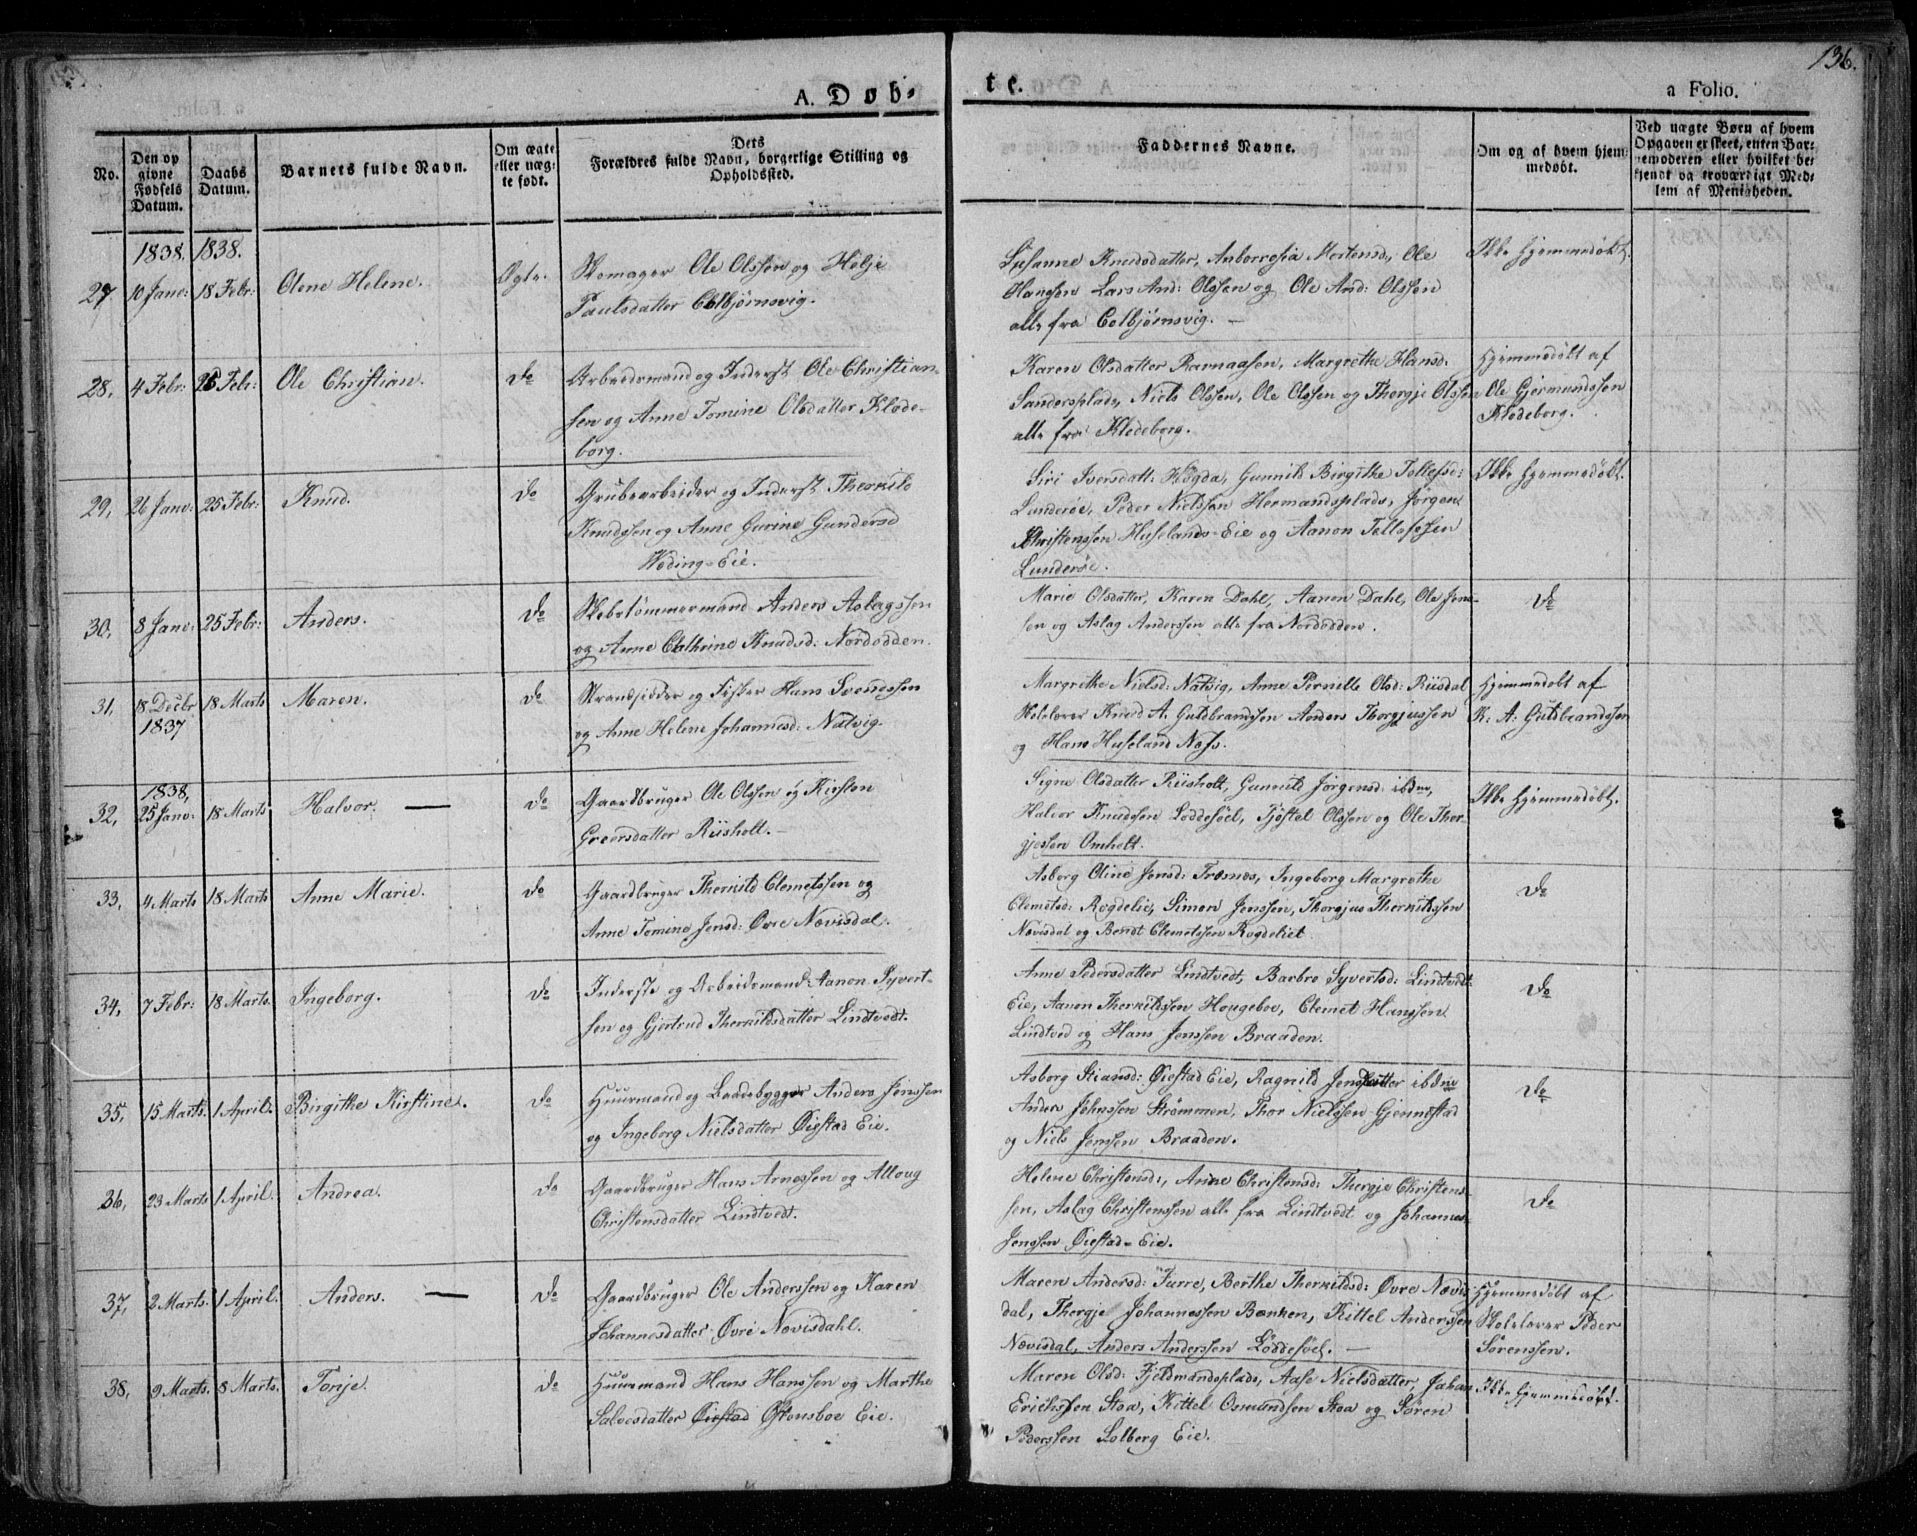 136.
A. Døb-
te.
a Folio.
No.
Den op
givne
Fødsels
Datum.
Daabs
Datum.
Barnets fulde Navn.
Om ægte
eller næg-
te født.
Dets
Forældres fulde Navn, borgerlige Stilling og
Opholdssted.
Faddernes Navne.
Om og af hvem hjem
medøbt.
Ved uægte Børn af hvem
Opgaven er skeet, enten Bar-
nemoderen eller hvilket be
kjendt og troværdigt Med-
lem af Menigheden.
1838. 1838.
27 10 Janv: 18 Febr: Olene Helene. Ægte.
Skomager Ole Olssen og Helje
Paulsdatter Colbjørnsvig.
Susanne Knudsdatter, Anborrosia Mortensd, Ole
Hanssen Lars And: Olssen og Ole And: Olssen
alle fra Colbjørnsvig. —
Ikke hjemmedøbt.
28, 4 Febr: 25 Febr: Ole Christian. do
Arbeidsmand og Inderst Ole Christian-
sen og Anne Tomine Olsdatter Klode-
borg.
Karen Olsdatter Ramaasen, Margrethe Hansd.
Sandersplads, Niels Olssen, Ole Olssen og Thorgje Olssen
alle fra Klodeborg.
Hjemmedøbt af
Ole Gjermundssen
Klodeborg.
29, 26 Janv: 25 Febr: Knud. do
Grubearbeider og Inderst Therkild
Knudssen og Anne Gurine Gundersd
Weding-Eie.
Siri Iversdatt: Høgda, Gunnild Birgithe Tellefsd:
Lunderøe, Peder Nielssen Hermandsplads, Jørgen
Christenssen Huselands-Eie og Aanon Tellefssen
Lunderøe.
Ikke hjemmedøbt.
30, 8 Janv: 25 Febr: Anders. do
Skibstømmermand Anders Aslagssen
og Anne Cathrine Knudsd: Nordodden.
Marie Olsdatter, Karen Dahl, Aanon Dahl, Ole Jens-
sen og Aslag Anderssen alle fra Nordodden.
do
31, 18 Decbr 18 Marts Maren. do
1837
Strandsidder og Fisker Hans Svendssen
og Anne Helene Johannesd: Natvig.
Margrethe Nielsd: Natvig, Anne Pernille Olsd: Riisdal
Skolelærer Knud A. Guldbrandssen Anders Thorgjussen
og Hans Huseland Næs.
Hjemmedøbt af
K. A: Guldbrandssen
1838,
32, 25 Janv: 18 Marts Halvor. — do
Gaardbruger Ole Olssen og Kirsten
Greersdatter Riisholt. —
Signe Olsdatter Riisholt, Gunnild Jørgensd: ibdm,
Halvor Knudssen Loddesøel, Tjøstel Olssen og Ole Thor-
gjessen Omholt.
Ikke hjemmedøbt.
33, 4 Marts 18 Marts Anne Marie. do
Gaardbruger Therkild Clemetssen og
Anne Tomine Jensd: Øvre Nævisdal.
Asborg Oline Jensd: Tromøe, Ingeborg Margrethe
Clemetsd: Rogdelie, Simon Jenssen, Thorgjus Therkildssen
Nævisdal og Bendt Clemetssen Rogdeliet.
do
34, 7 Febr: 18 Marts. Ingeborg. do
Inderste og Arbeidsmand Aanon Syvert-
sen og Gjertrud Therkildsdatter Lindtvedt.
Anne Pedersdatter Lindtvedt, Barbro Syvertsd: Lindtvedt-
Eie, Aanon Therkildssen Hougeboe, Clemet Hanssen
Lindtved og Hans Jenssen Braaden.
do
35, 15 Marts. 1 April. Birgithe Kirstine. do
Huusmand og Baadebygger Anders Jenssen
og Ingeborg Nielsdatter Øiestad Eie.
Asborg Stiansd: Øiestad Eie, Ragnild Jensdatter ibdm
Anders Johnssen Strømmen, Thor Nielssen Gjennestad
og Niels Jenssen Braaden.
do
36, 23 Marts 1 April. Andrea. do
Gaardbruger Hans Arnessen og Alloug
Christensdatter Lindtvedt.
Helene Christensd:, Anne Christensd: Thorgje Christens-
sen, Aslag Christenssen alle fra Lindtvedt og Johannes
Jenssen Øiestad-Eie.
do
37, 2 Marts. 1 April. Anders. — do
Gaardbruger Ole Anderssen og Karen
Johannesdatter Øvre Nævisdahl.
Maren Andersd: Furre, Berthe Therkildsd: Øvre Nævis
dal, Thorgje Johannessen Bænken, Kittel Anderssen
Nævisdal, Anders Anderssen Løddesøel. —
Hjemmedøbt af
Skolelærer Peder
Sørenssen.
38, 9 Marts. 8 Marts. Terje. do
Huusmand Hans Hanssen og Marthe
Salvesdatter Øiestad Østensboe Eie.
Maren Olsd: Fjeldmandsplads, Aase Nielsdatter, Johan
Erichssen Stoa, Kittel Osmundsen Stoa og Søren
Pederssen Solberg Eie.
Ikke hjemmedøbt.